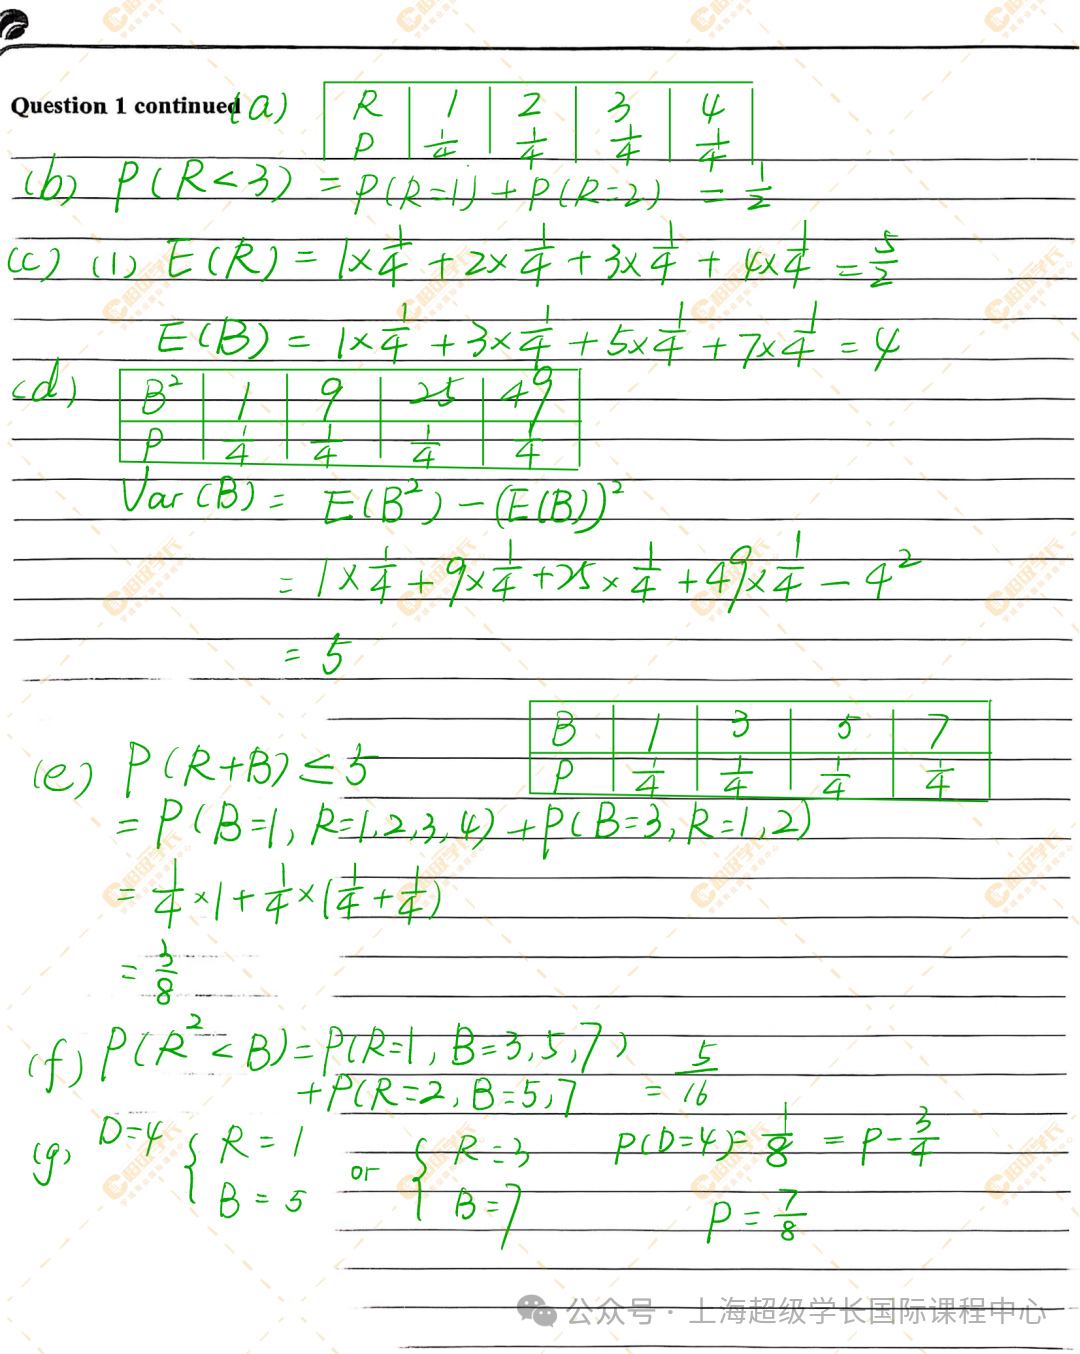 Question 1 continued (a)
R 1 2 3 4
P 1/4 1/4 1/4 1/4
(b) P(R<3) = P(R=1) + P(R=2) = 1/2
(c) (1) E(R) = 1×1/4 + 2×1/4 + 3×1/4 + 4×1/4 = 5/2
E(B) = 1×1/4 + 3×1/4 + 5×1/4 + 7×1/4 = 4
(d)
B² 1 9 25 49
P 1/4 1/4 1/4 1/4
Var(B) = E(B²) - (E(B))²
= 1×1/4 + 9×1/4 + 25×1/4 + 49×1/4 - 4²
= 5
B 1 3 5 7
P 1/4 1/4 1/4 1/4
(e) P(R+B) ≤ 5
= P(B=1, R=1,2,3,4) + P(B=3, R=1,2)
= 1/4×1 + 1/4×(1/4 + 1/4)
= 3/8
(f) P(R²<B) = P(R=1, B=3,5,7)
+P(R=2, B=5,7 = 5/16
(g) D=4 { R=1 B=5 or { R=3 B=7 P(D=4) = 1/8 = P - 3/4
P = 7/8
公众号 · 上海超级学长国际课程中心